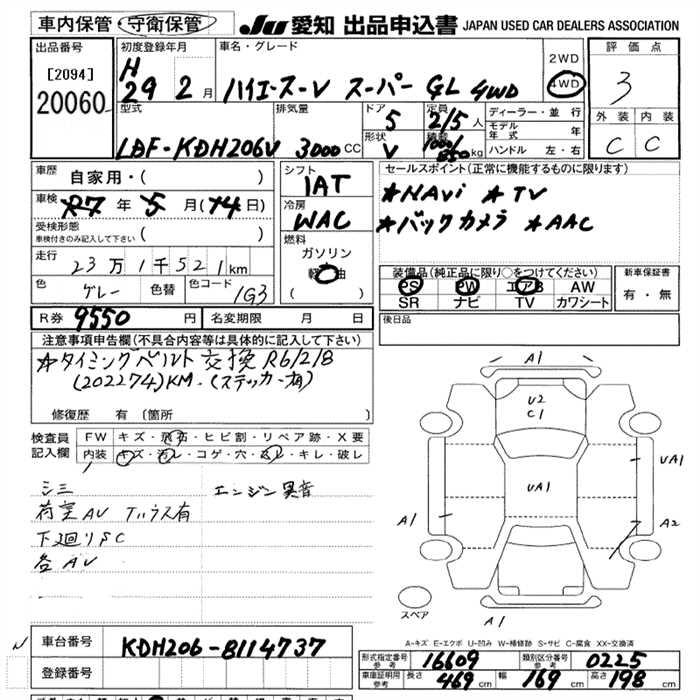 車内保管・守衛保管
JU 愛知 出品申込書 JAPAN USED CAR DEALERS ASSOCIATION
出品番号
[2094]
20060
初度登録年月
H 29 2月
車名・グレード
ハイエースーV スーパー GL 4WD
2WD
4WD
評価点
3
外装 内装
C C
型式
LDF-KDH206V
排気量
3000CC
ドア
5
形状
V
定員
2/5人
積載
1000/850kg
ディーラー・並行
モデル年式 年
ハンドル 左・右
車歴
自家用・( )
車検
R7年5月(14日)
受検形態
車検付きのみ記入して下さい ( )
走行
23万1千521km
色
グレー
色替
色コード
1G3
シフト
IAT
冷房
WAC
燃料
ガソリン
軽油
( )
セールスポイント(正常に機能するものに限ります)
★NAVi ★TV
★バックカメラ ★AAC
装備品(純正品に限り○をつけてください)
PS PW エアB AW
SR ナビ TV カワシート
新車保証書
有・無
R券 9550円 名変期限 月 日
後日品
注意事項申告欄(不具合内容等は具体的に記入して下さい)
★タイミングベルト交換 R6/2/8
(202274)KM.(ステッカー有)
修復歴 有 [箇所 ]
検査員記入欄
FW キズ・飛石・ヒビ割・リペア跡・X要
内装 キズ・汚レ・コゲ・穴・スレ・キレ・破レ
シミ
荷室AV Tハウス有
下廻りSC
各AV
エンジン異音
A1
U2
C1
UA1
UA1
A1
A2
A1
スペア
A-キズ E-エクボ U-凹み W-補修跡 S-サビ C-腐食 XX-交換済
車台番号
KDH206-8114737
登録番号
形式指定番号 参考 16609
類別区分番号 参考 0225
車庫証明用 参考 長さ 469cm 幅 169cm 高さ 198cm